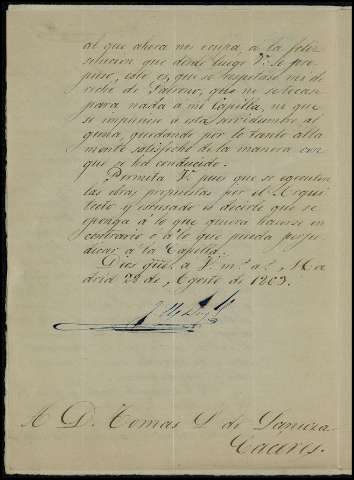 al que ahora nos ocupa, a la feliz
solucion que desde luego V. le pro
puso, esto es, que se respetase mi de
recho de Patrono, que no se tocase
para nada á mi Capilla, ni que
se impusiese a esta servidumbre al
guna, quedando por lo tanto alta
mente satisfecho de la manera con
que se ha conducido.
Permita V. pues que se ejecuten
las obras propuestas por el Arqui
tecto y escusado es decirle que se
oponga á lo que quiera hacerse en
contrario o á lo que pueda perju
dicar a la Capilla.
Dios gue. a V. m. a. Ma
drid 28 de Agosto de 1863.
A D. Tomas S. de
Caceres.